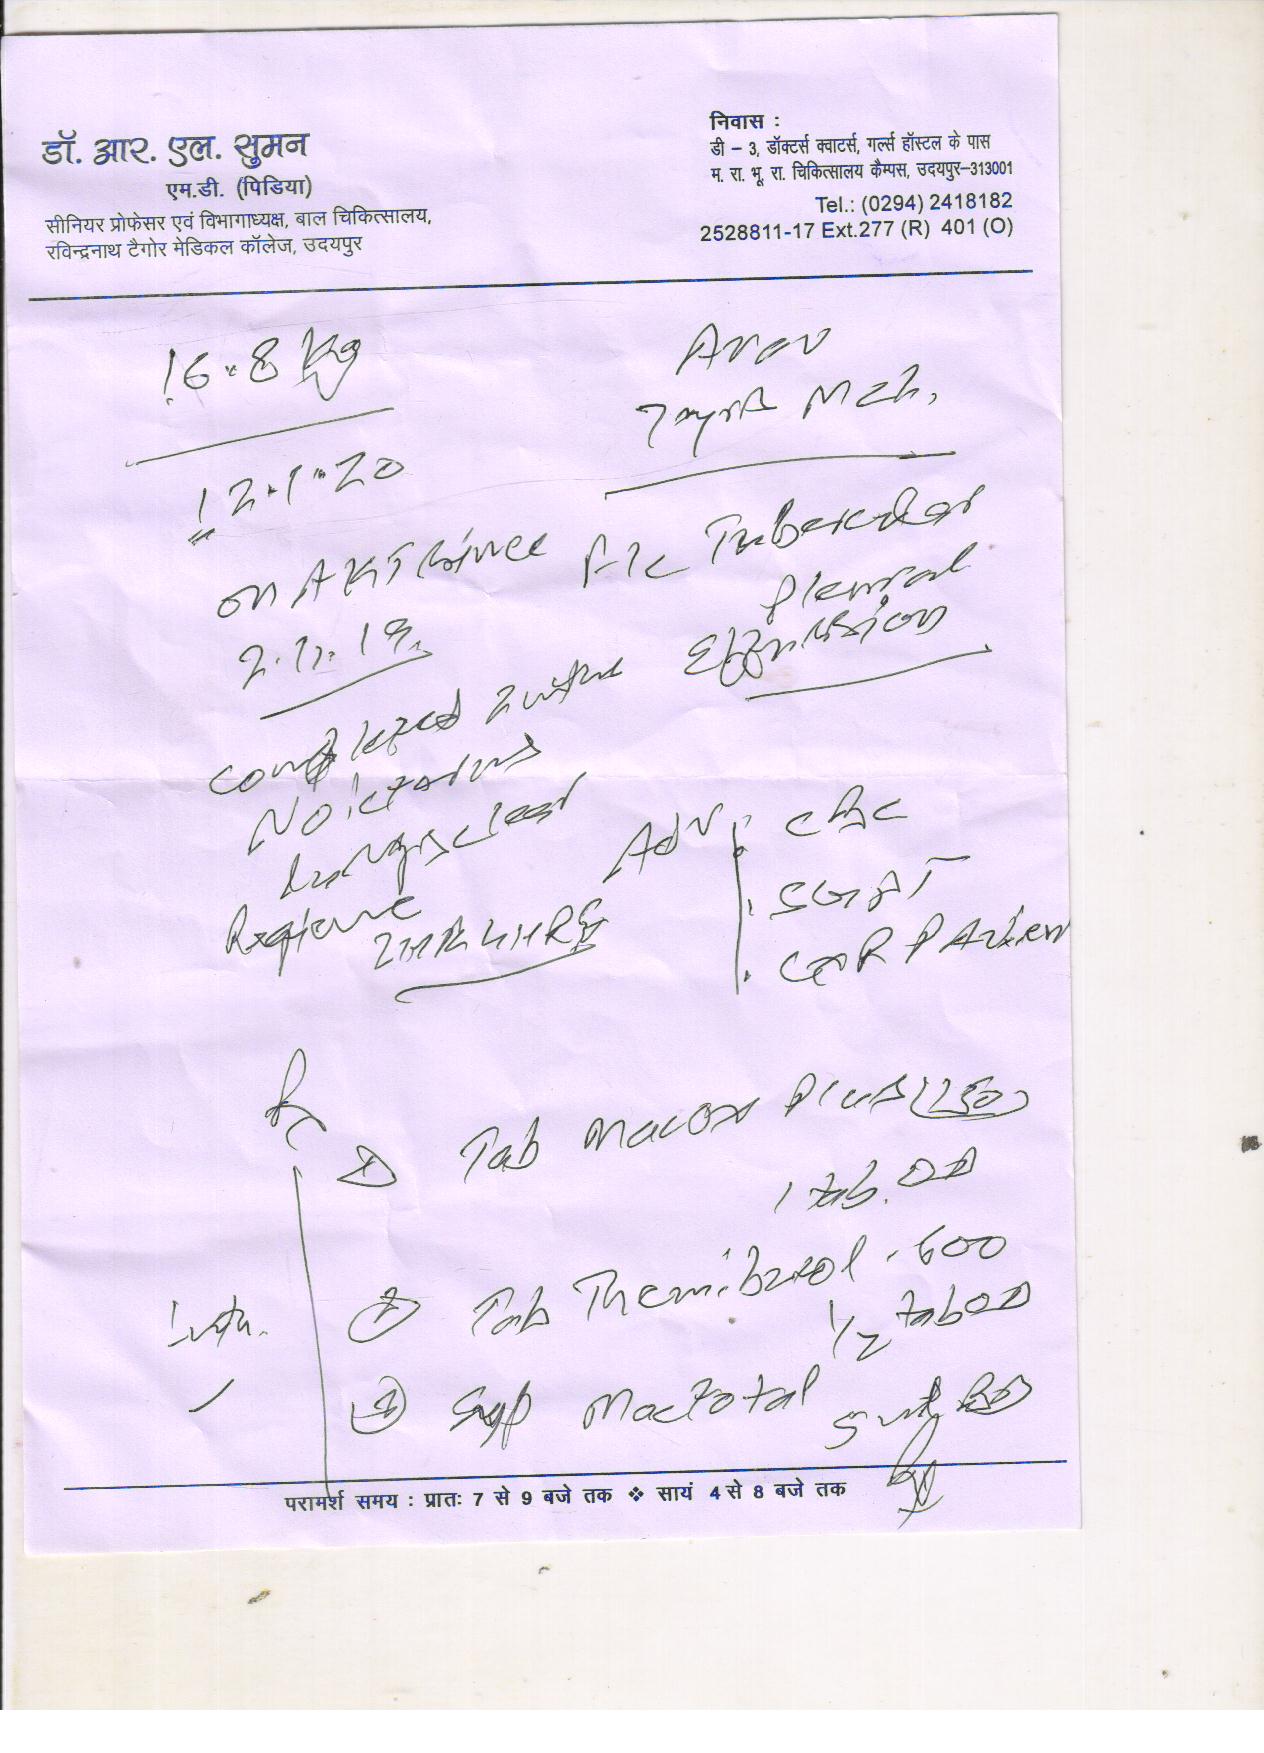 डॉ. आर. एल. सुमन
एम.डी. (पिडिया)
सीनियर प्रोफेसर एवं विभागाध्यक्ष, बाल चिकित्सालय,
रविन्द्रनाथ टैगोर मेडिकल कॉलेज, उदयपुर
निवास :
डी – 3, डॉक्टर्स क्वाटर्स, गर्ल्स हॉस्टल के पास
म. रा. भू. रा. चिकित्सालय कैम्पस, उदयपुर–313001
Tel.: (0294) 2418182
2528811-17 Ext.277 (R) 401 (O)
16.8 Kg
Arav
7 Mch.
12.1.20
on AKT since
F/c Tubercular
Pleural
Effusion
completed
No icterus
Lungs clear
Regime
2HRZ 4HR
Adv: CBC
SGPT
CXR PA view
Rx
① Tab Macox Plus (150)
1 tab. OD
② Tab 600
1/2 tab OD
③ Syp Mactotal
5 ml
परामर्श समय : प्रातः 7 से 9 बजे तक ❖ सायं 4 से 8 बजे तक